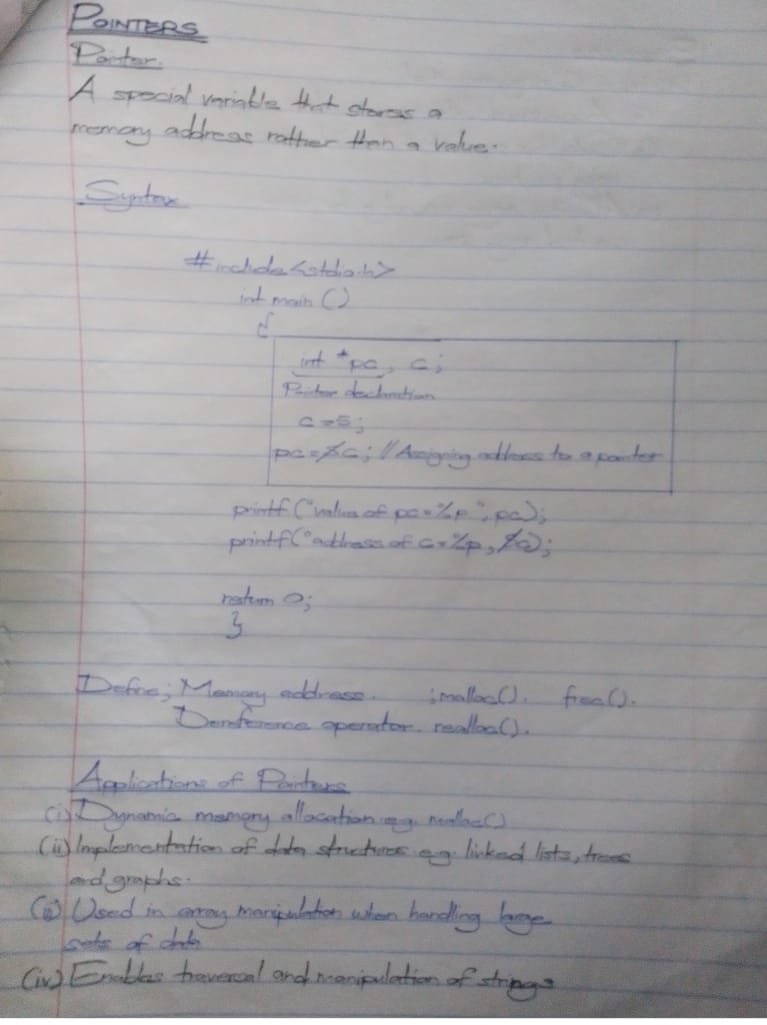 POINTERS
Pointer.
A special variable that stores a
memory address rather than a value.
Syntax
#include<stdio.h>
int main ()
{
int *pc, c;
Pointer declaration
c=5;
pc=&c; // Assigning address to a pointer
printf ("value of pc=%p", pc);
printf("address of c=%p, &c);
return 0;
}
Define; Memory address. ;malloc(). free().
Dereference operator. realloc().
Applications of Pointers
(i) Dynamic memory allocation eg. malloc()
(ii) Implementation of data structures eg. linked lists, trees
and graphs.
(iii) Used in array manipulation when handling large
sets of data
(iv) Enables traversal and manipulation of strings